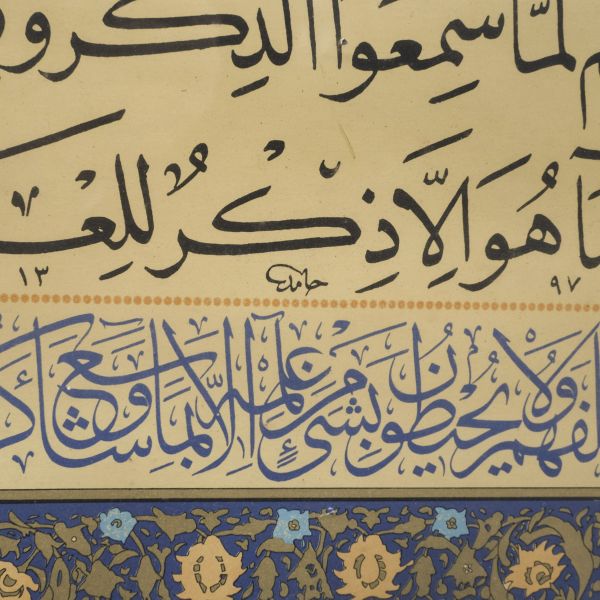 لَمَّا سَمِعُوا الذِّكْرَ وَ
هُوَ إِلَّا ذِكْرٌ لِلْعَـ
١٣ حامد ٩٧
خلفهم ولا يحيطون بشيء من علمه إلا بما شاء وسع